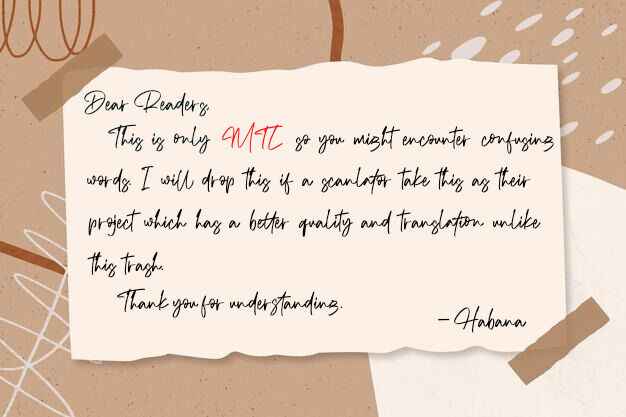 Dear Readers,
This is only MTL so you might encounter confusing
words. I will drop this if a scanlator take this as their
project which has a better quality and translation unlike
this trash.
Thank you for understanding.
- Habana